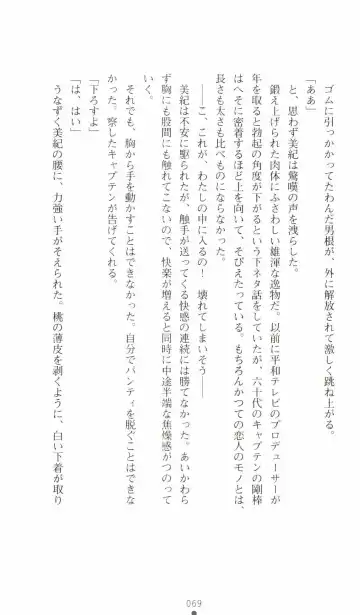 ゴムに引っかかってたわんだ男根が、外に解放されて激しく跳ね上がる。
「ああ」
と、思わず美紀は驚嘆の声を洩らした。
鍛え上げられた肉体にふさわしい雄渾な逸物だ。以前に平和テレビのプロデューサーが
年を取ると勃起の角度が下がるという下ネタ話をしていたが、六十代のキャプテンの剛棒
はへそに密着するほど上を向いて、そびえたっている。もちろんかつての恋人のモノとは、
長さも太さも比べものにならなかった。
――こ、これが、わたしの中に入るの！　壊れてしまいそう――
美紀は不安に駆られたが、触手が送ってくる快感の連続には勝てなかった。あいかわら
ず胸にも股間にも触れてこないので、快楽が増えると同時に中途半端な焦燥感がつのって
いく。
それでも、胸から手を動かすことはできなかった。自分でパンティを脱ぐことはできな
かった。察したキャプテンが告げてくれる。
「下ろすよ」
「は、はい」
うなずく美紀の腰に、力強い手がそえられた。桃の薄皮を剥くように、白い下着が取り
069